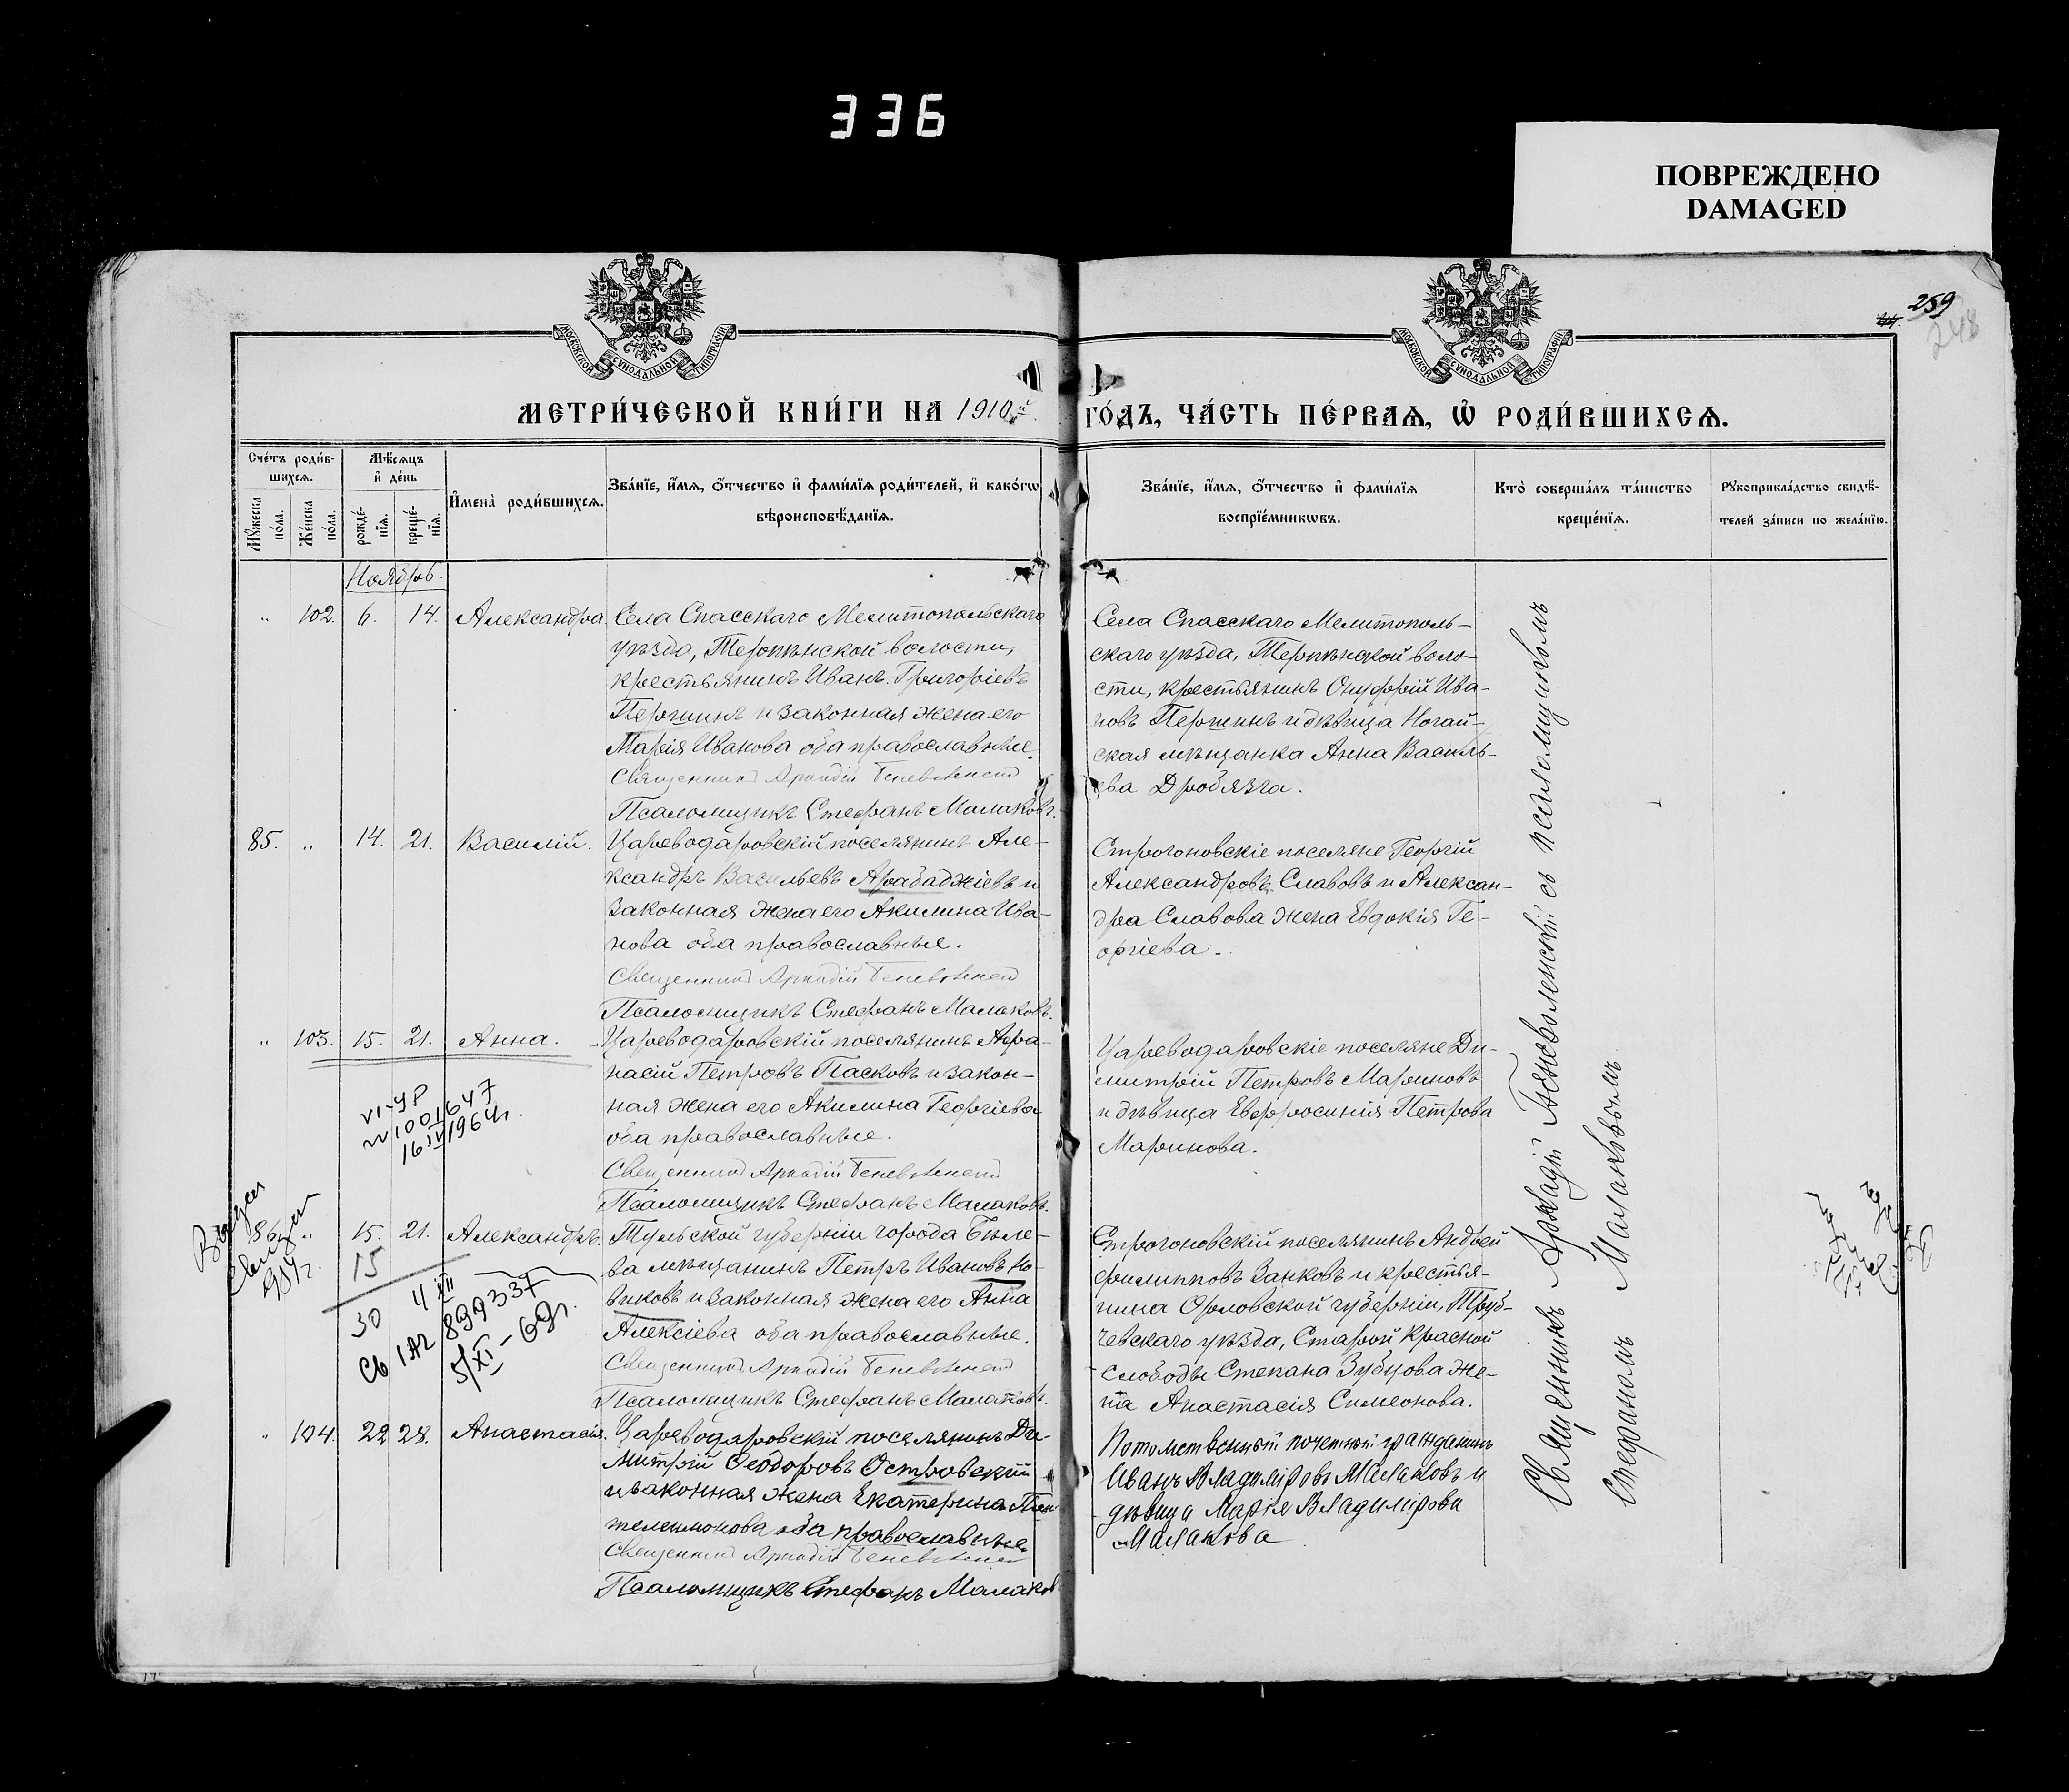 336
ПОВРЕЖДЕНО
DAMAGED
259
248
МОСКОВСКОЙ СѴНОДАЛЬНОЙ ТИПОГРАФІИ
МОСКОВСКОЙ СѴНОДАЛЬНОЙ ТИПОГРАФІИ
МЕТРИ́ЧЕСКОЙ КНИ́ГИ НА 1910й
ГО́ДЪ, ЧА́СТЬ ПЕ́РВАѦ, Ѡ҆ РОДИ́ВШИХСѦ.
Сче́тъ роди́в-
шихсѧ.
Мꙋ́жеска по́ла.
Же́нска по́ла.
Мѣ́сѧцъ
и҆ де́нь
рожде́-нїѧ.
креще́-нїѧ.
И҆мена̀ роди́вшихсѧ.
Зва́нїе, и҆́мѧ, ѻ҆́тчество и҆ фами́лїѧ роди́телей, и҆ како́гѡ
вѣроисповѣ́данїѧ.
Зва́нїе, и҆́мѧ, ѻ҆́тчество и҆ фами́лїѧ
воспрїе́мникѡвъ.
Кто̀ соверша́лъ та́инство
креще́нїѧ.
Рꙋкоприкла́дство свидѣ́-
телей за́писи по жела́нїю.
Ноябрь.
" 102. 6. 14. Александра.
Села Спасскаго Мелитопольскаго
уѣзда, Терпѣнской волости,
крестьянинъ Иванъ Григоріевъ
Першинъ и законная жена его
Марія Иванова оба православные.
Священникъ Аркадій Беневоленскій
Псаломщикъ Стефанъ Малаковъ.
Села Спасскаго Мелитополь-
скаго уѣзда, Терпѣнской воло-
сти, крестьянинъ Онуфрій Ива-
новъ Першинъ и дѣвица Ногай-
ская мѣщанка Анна Василь-
ева Дробязга.
85. " 14. 21. Василій.
Цареводаровскій поселянинъ Але-
ксандръ Васильевъ Арабаджіевъ и
законная жена его Акилина Ива-
нова оба православные.
Священникъ Аркадій Беневоленскій
Псаломщикъ Стефанъ Малаковъ.
Строгоновскіе поселяне Георгій
Александровъ Славовъ и Алексан-
дра Славова жена Евдокія Ге-
оргіева.
" 103. 15. 21. Анна.
Цареводаровскій поселянинъ Афа-
насій Петровъ Пасковъ и закон-
ная жена его Акилина Георгіева
оба православные.
Священникъ Аркадій Беневоленскій
Псаломщикъ Стефанъ Малаковъ.
Цареводаровскіе поселяне Ди-
митрій Петровъ Мариновъ
и дѣвица Евфросинія Петрова
Маринова.
VI-УР
№ 1001647
16 IV 1964г.
86. " 15. 21. Александръ.
Тульской губерніи города Бѣле-
ва мѣщанинъ Петръ Ивановъ Но-
виковъ и законная жена его Анна
Алексіева оба православные.
Священникъ Аркадій Беневоленскій
Псаломщикъ Стефанъ Малаковъ.
Строгоновскій поселянинъ Андрей
Филипповъ Занковъ и крестья-
нина Орловской губерніи, Труб-
чевскаго уѣзда, Старой Красной
слободы Степана Зубцова же-
на Анастасія Симеонова.
15
30 4 XII
Св 1АР 899337
5/XI-69г.
" 104. 22 28. Анастасія.
Цареводаровскій поселянинъ Ди-
митрій Ѳеодоровъ Островскій
и законная жена Екатерина Пан-
телеимонова оба православные
Священникъ Аркадій Беневоленскій
Псаломщикъ Стефанъ Малаков
Потомственный почетный гражданинъ
Иванъ Владиміровъ Малаковъ и
дѣвица Марія Владимірова
Малакова
Священникъ Аркадій Беневоленскій съ псаломщикомъ
Стефаномъ Малаковымъ